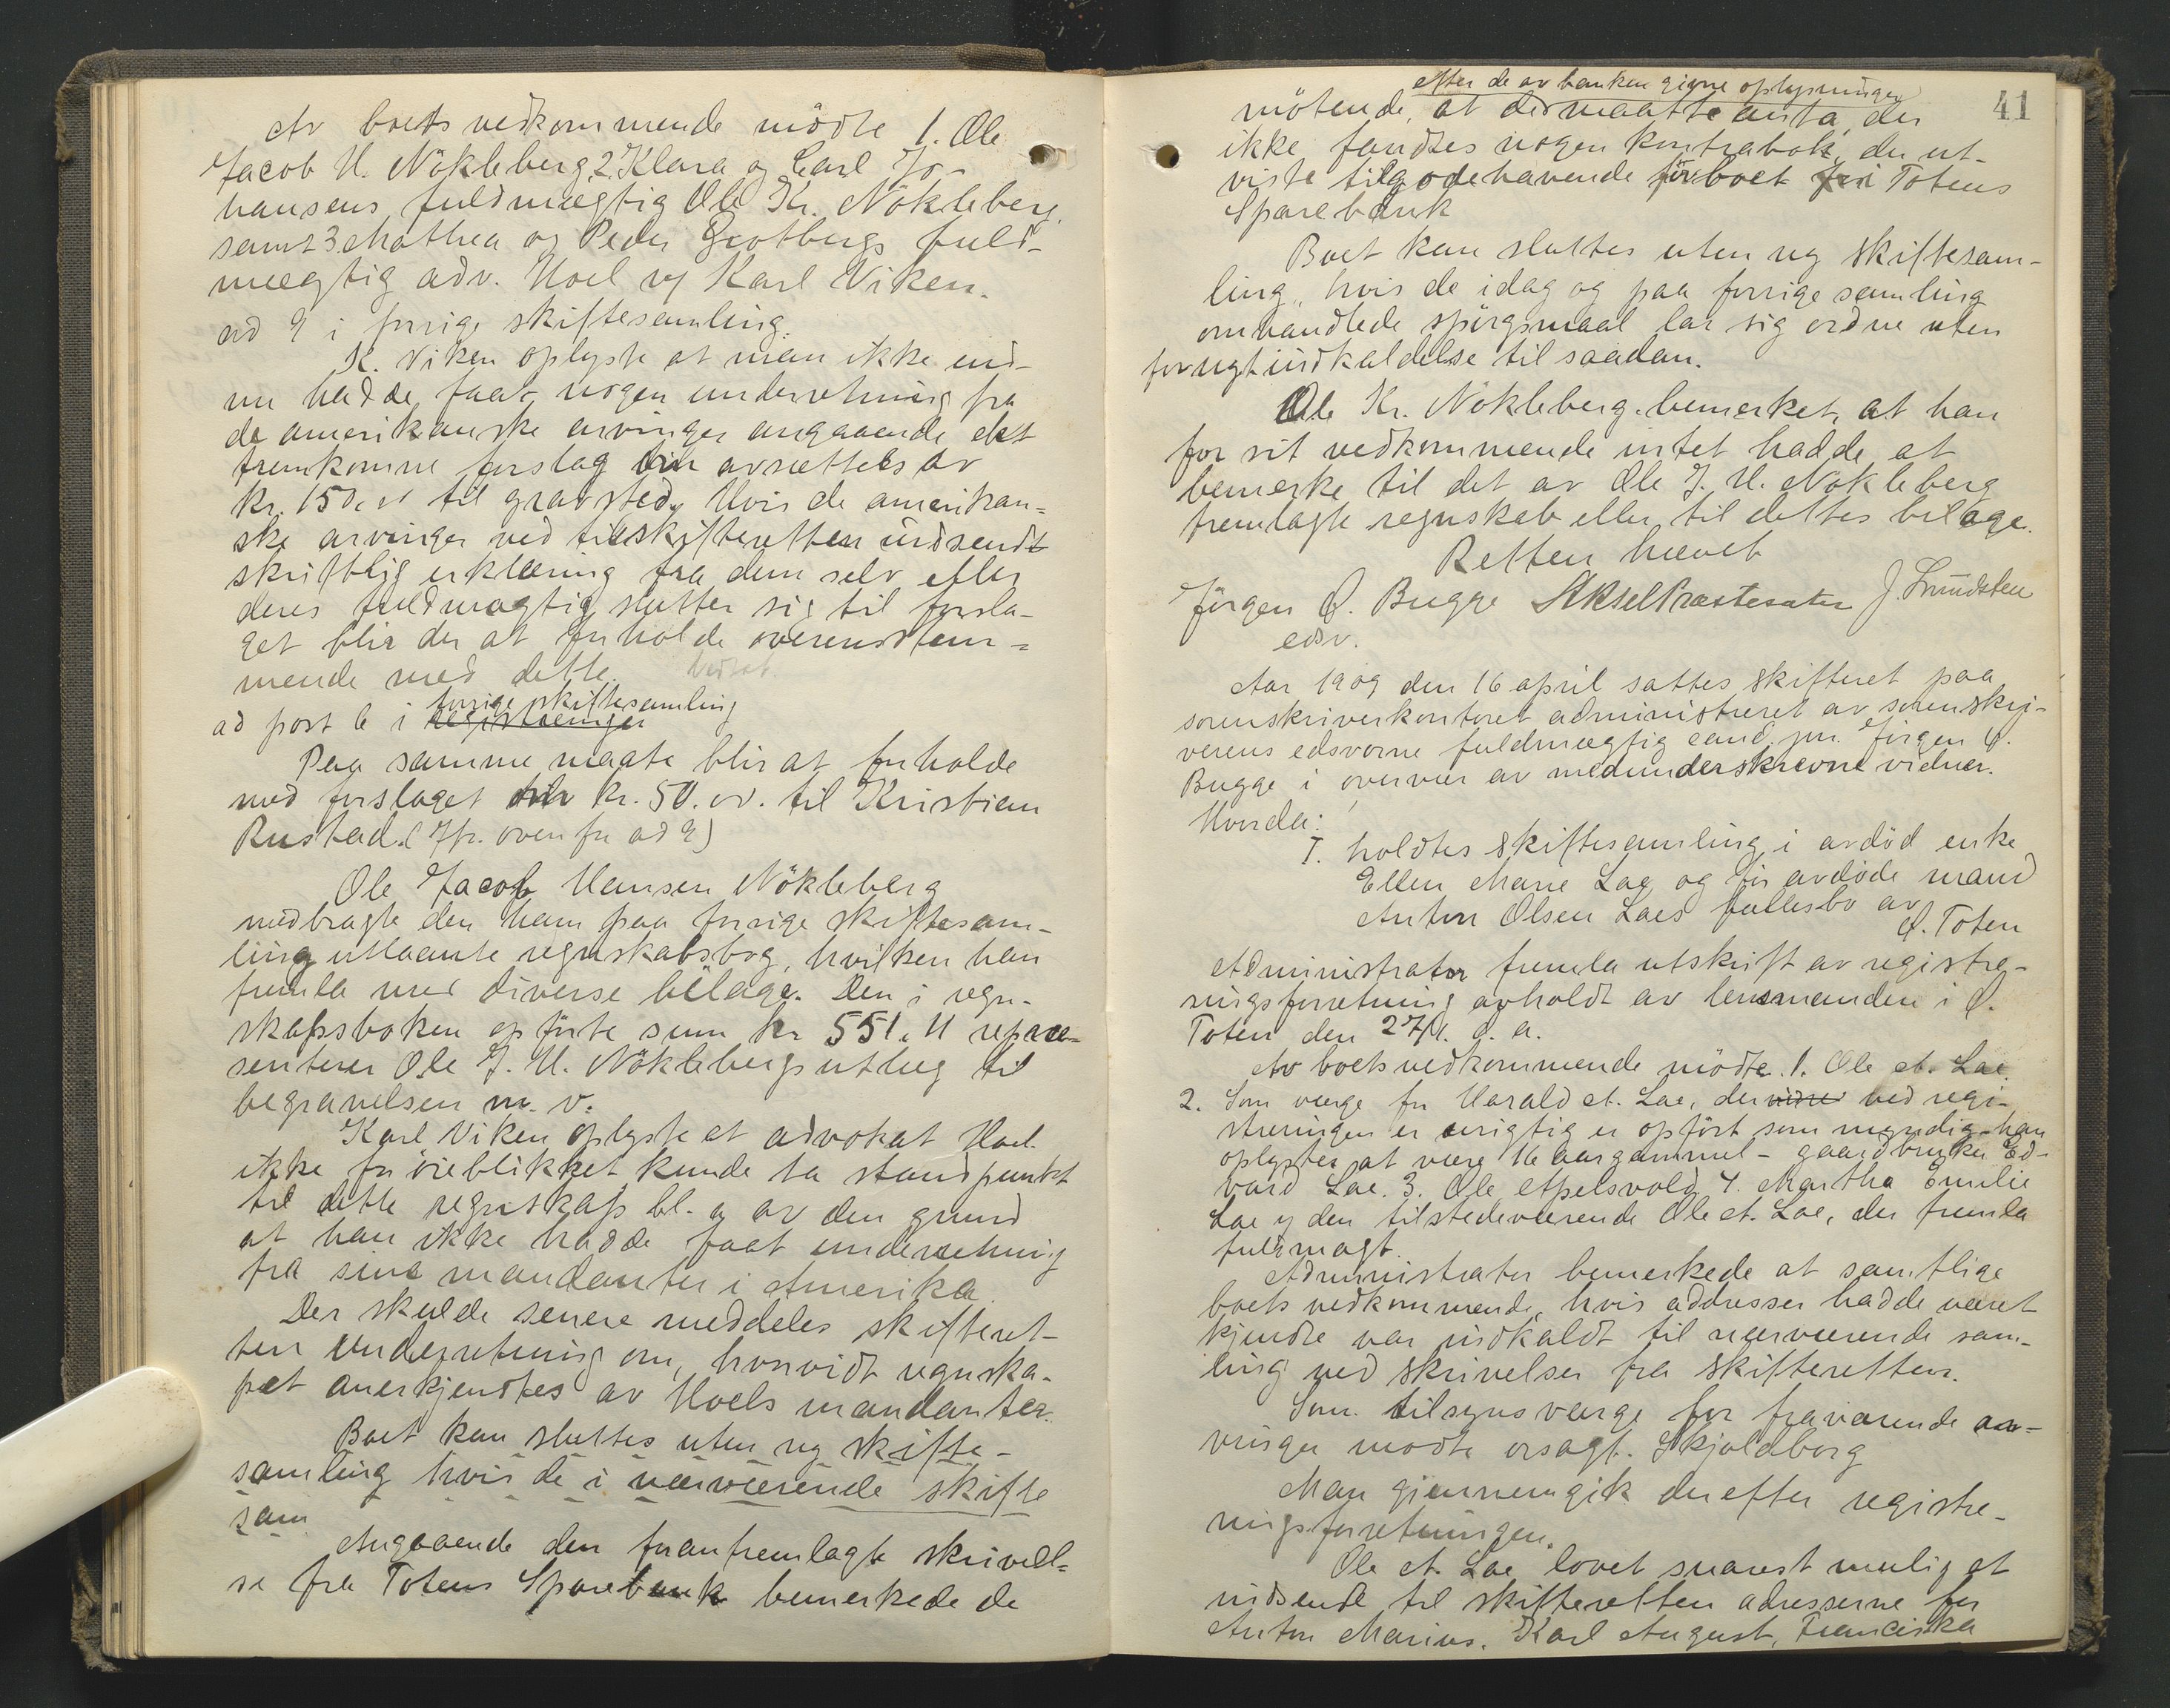 Av boets vedkommende mödte 1. Ole
Jacob H. Nökleberg, 2. Klara og Carl Jo-
hansens fuldmægtig Ole Kr. Nökleberg
samt 3 Mathea og Peder Grotbergs fuld-
mægtig adv. Hoel v/ Karl Viken.
ad 9 i forrige skiftesamling.
K. Viken oplyste at man ikke end-
nu hadde faat nogen underretning fra
de amerikanske arvinger angaaende det
fremkomne forslag om avsættels av
kr. 150. til gravsted. Hvis de amerikan-
ske arvinger ved til skifteretten indsendt
skriftlig erklæring fra dem selv eller
deres fuldmægtig slutter sig til forsla-
get blir der at forholde overenstem-
mende med dette. Vedtat.
forrige skiftesamling
ad post 6 i registreringen
Paa samme maate blir at forholde
med forslaget om kr. 50. til Kristian
Rustad. (Jfr. ovenfor ad 9)
Ole Jacob Hansen Nökleberg
medbragte den ham paa forrige skiftesam-
ling utlaante regnskabsbog, hvilken han
fremla med diverse bilage. Den i regn-
skapsboken opförte sum kr 551. 11 repræ-
senterer Ole J. H. Nöklebergs utlæg til
begravelsen m. v.
Karl Viken oplyste at advokat Hoel
ikke for öieblikket kunde ta standpunkt
til dette regnskap bl. a. av den grund
at han ikke hadde faat underretning
fra sine mandanter i Amerika.
Der skulde senere meddeles skifteret-
ten underretning om, hvorvidt regnska-
pet anerkjendtes av Hoels mandanter.
Boet kan sluttes uten ny skifte-
samling hvis de i nærværende skifte
sam
Angaaende den foran fremlagte skrivel-
se fra Totens Sparebank bemerkede de
41
efter de av banken givne oplysninger
mötende, at det maatte anta, der
ikke fandtes nogen kontrabok, der ut-
viste tilgodehavende for boet i Totens
Sparebank
Boet kan sluttes uten ny skiftesam-
ling, hvis de idag og paa forrige samling
omhandlede spörgsmaal lar sig ordne uten
fornyet indkaldelse til saadan.
Ole Kr. Nökleberg bemerket, at han
for sit vedkommende intet hadde at
bemerke til det av Ole J. H. Nökleberg
fremlagte regnskab eller til dettes bilage.
Retten hævet
Jörgen Q. Bugge Aksel Præstesæter J. Lundsten
edsv.
Aar 1909 den 16 april sattes skifteret paa
sorenskriverkontoret administreret av sorenskri-
verens edsvorne fuldmægtig cand. jur. Jörgen Q.
Bugge i overvær av medunderskrevne vidner.
Hvorda:
I. holdtes skiftesamling i avdöd enke
Ellen Marie Lae og för avdöde mand
Anton Olsen Laes fællesbo av
Ö. Toten
Administrator fremla utskrift av registre-
ringsforretning avholdt av lensmanden i Ö.
Toten den 27/1. d. a.
Av boets vedkommende mödte 1. Ole A. Lae
2. Som værge for Harald A. Lae, der ved regi-
streringen er urigtig er opfört som myndig - han
oplystes at være 16 aar gammel - gaardbruker Ed-
vard Lae. 3. Ole Apelsvold 4. Martha Emilie
Lae v/ den tilstedeværende Ole A. Lae, der fremla
fuldmagt.
Administrator bemerkede at samtlige
boets vedkommende, hvis addresser hadde været
kjendte var indkaldt til nærværende sam-
ling ved skrivelser fra skifteretten.
Som tilsynsværge for fraværende ar-
vinger mödte orsagf. Skjoldborg
Man gjennemgik derefter registre-
ringsforretningen.
Ole A. Lae lovet snarest mulig at
indsende til skifteretten adresserne for
Anton Marius, Karl August, Franciska